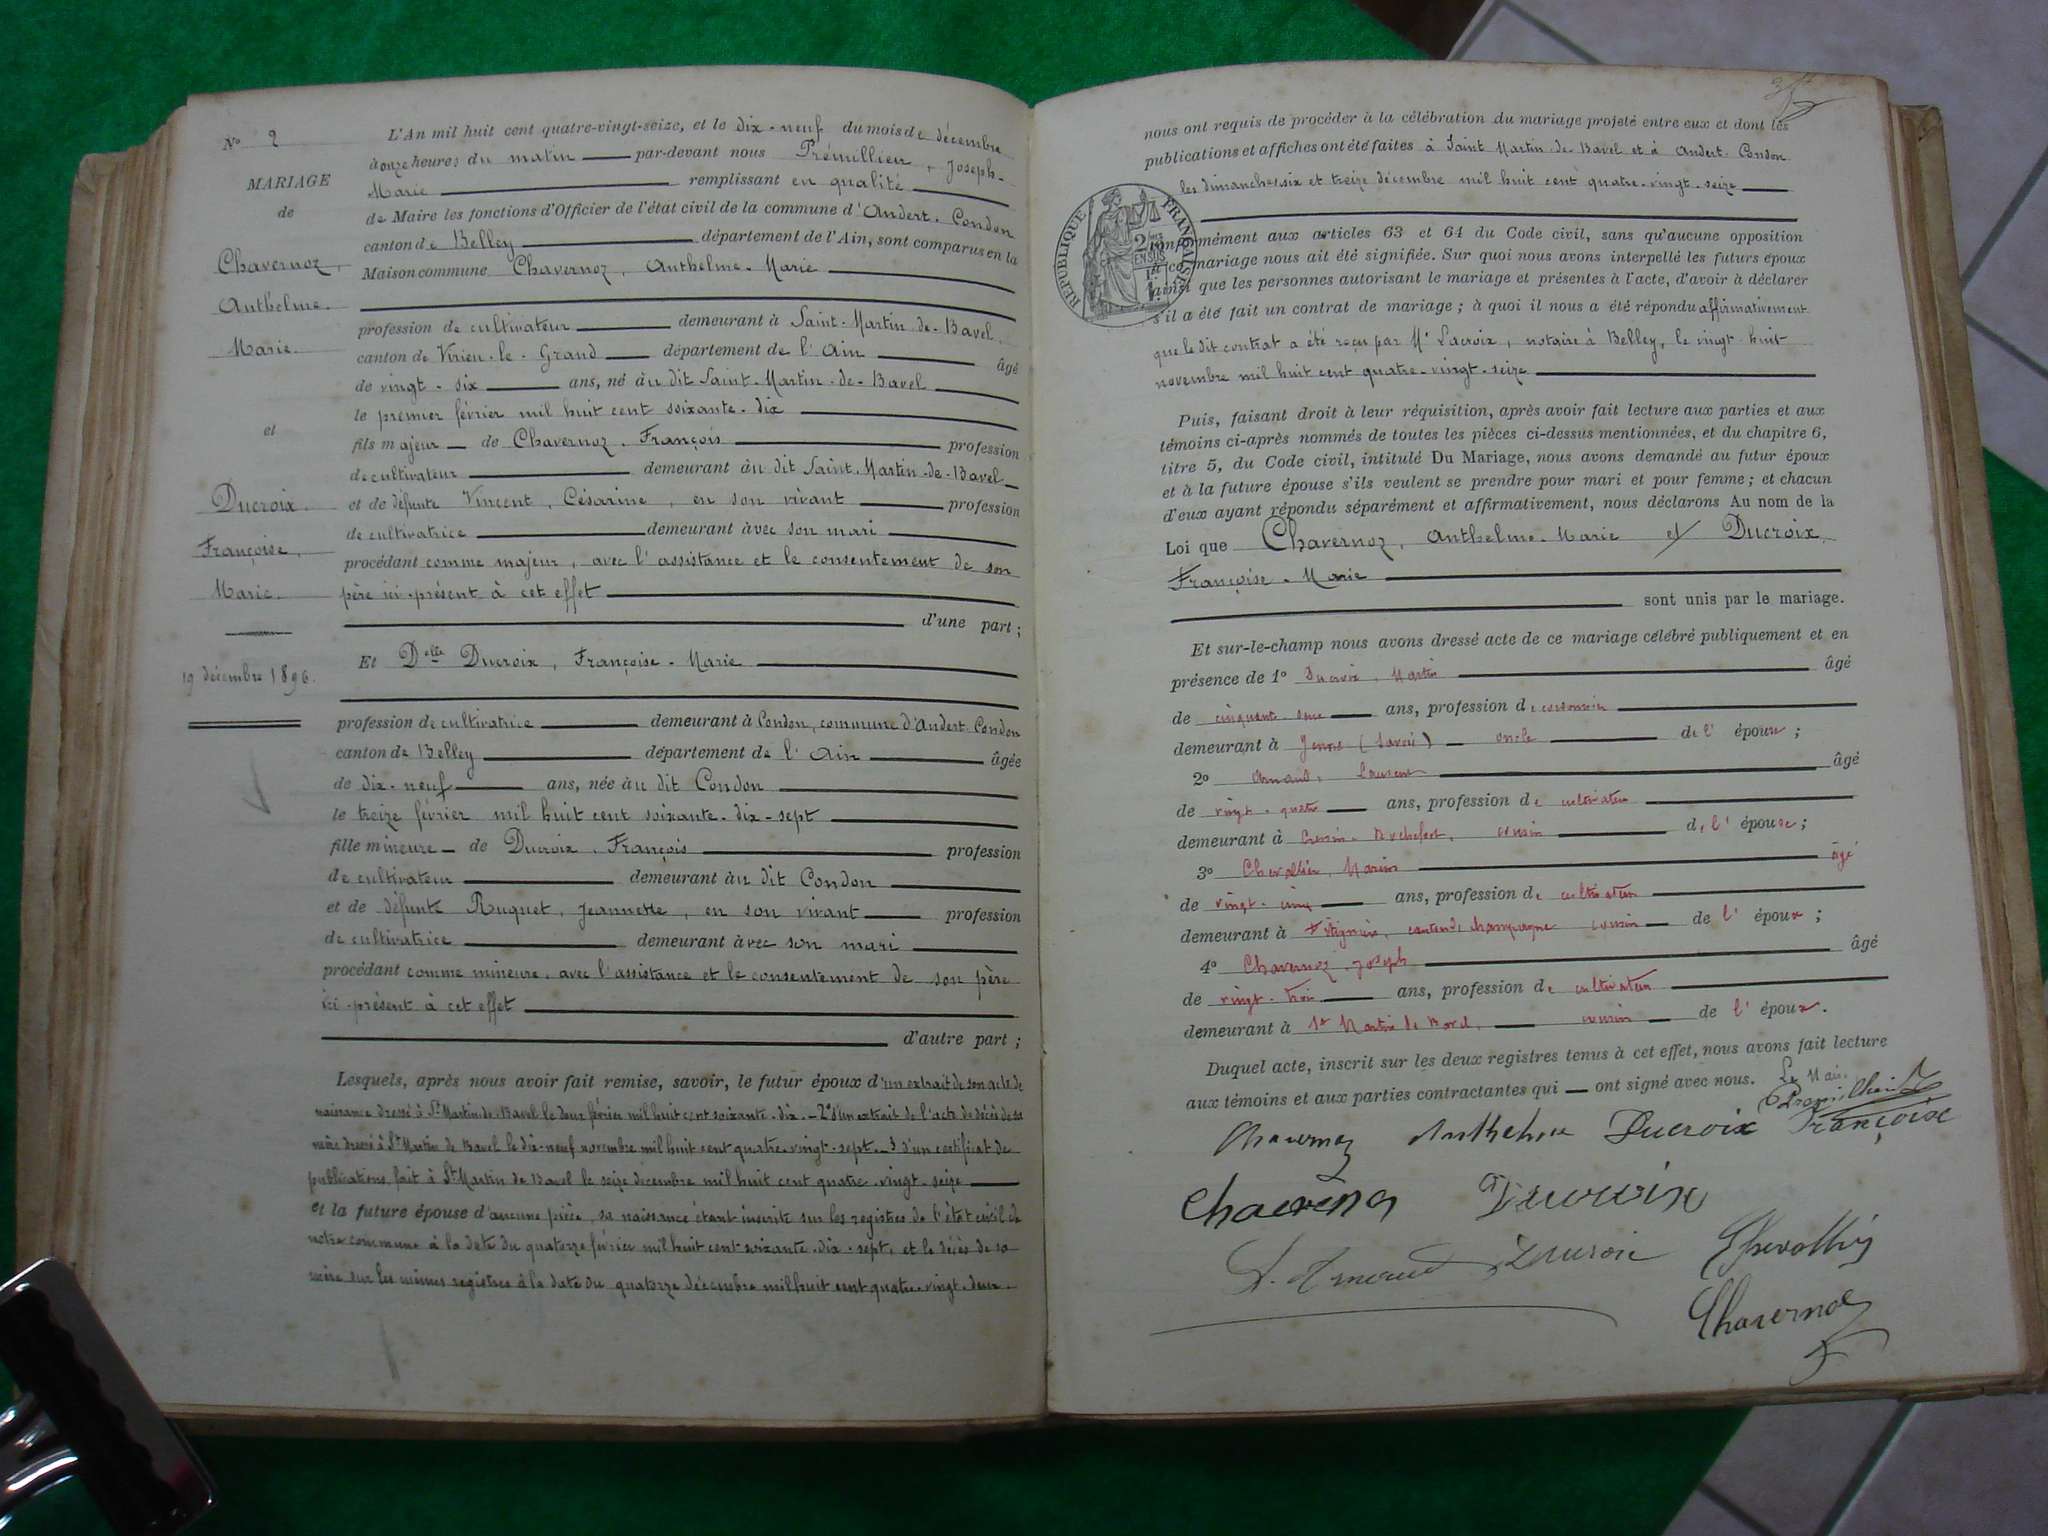 N° 2
MARIAGE
de
Chavernoz,
Anthelme.
Marie.
et
Ducroix.
Françoise,
Marie.
19 décembre 1896.
L'An mil huit cent quatre-vingt-seize, et le dix-neuf du mois de décembre
à onze heures du matin par-devant nous Prémillieu, Joseph-
Marie remplissant en qualité
de Maire les fonctions d'Officier de l'état civil de la commune d'Andert-Condon
canton de Belley département de l'Ain, sont comparus en la
Maison commune Chavernoz, Anthelme-Marie
profession de cultivateur demeurant à Saint-Martin-de-Bavel,
canton de Virieu-le-Grand département de l'Ain âgé
de vingt-six ans, né au dit Saint-Martin-de-Bavel
le premier février mil huit cent soixante-dix
fils majeur de Chavernoz, François profession
de cultivateur demeurant au dit Saint-Martin-de-Bavel
et de défunte Vincent, Césarine, en son vivant profession
de cultivatrice demeurant avec son mari
procédant comme majeur, avec l'assistance et le consentement de son
père ici-présent à cet effet
d'une part;
Et Delle Ducroix, Françoise-Marie
profession de cultivatrice demeurant à Condon, commune d'Andert-Condon
canton de Belley département de l'Ain âgée
de dix-neuf ans, née au dit Condon
le treize février mil huit cent soixante-dix-sept
fille mineure de Ducroix, François profession
de cultivateur demeurant au dit Condon
et de défunte Ruguet, Jeannette, en son vivant profession
de cultivatrice demeurant avec son mari
procédant comme mineure, avec l'assistance et le consentement de son père
ici-présent à cet effet
d'autre part;
Lesquels, après nous avoir fait remise, savoir, le futur époux d'un extrait de son acte de
naissance dressé à St Martin-de-Bavel le deux février mil huit cent soixante-dix. - 2° d'un extrait de l'acte de décès de sa
mère dressé à St Martin de Bavel le dix-neuf novembre mil huit cent quatre-vingt-sept. - 3 d'un certificat de
publications fait à St Martin de Bavel le seize décembre mil huit cent quatre-vingt-seize
et la future épouse d'aucune pièce, sa naissance étant inscrite sur les registres de l'état civil de
notre commune à la date du quatorze février mil huit cent soixante-dix-sept, et le décès de sa
mère sur les mêmes registres à la date du quatorze décembre mil huit cent quatre-vingt-deux
nous ont requis de procéder à la célébration du mariage projeté entre eux et dont les
publications et affiches ont été faites à Saint Martin-de-Bavel et à Andert-Condon
les dimanches six et treize décembre mil huit cent quatre-vingt-seize
RÉPUBLIQUE FRANÇAISE
conformément aux articles 63 et 64 du Code civil, sans qu'aucune opposition
mariage nous ait été signifiée. Sur quoi nous avons interpellé les futurs époux
ainsi que les personnes autorisant le mariage et présentes à l'acte, d'avoir à déclarer
s'il a été fait un contrat de mariage; à quoi il nous a été répondu affirmativement
que le dit contrat a été reçu par Me Lacroix, notaire à Belley, le vingt-huit
novembre mil huit cent quatre-vingt-seize
Puis, faisant droit à leur réquisition, après avoir fait lecture aux parties et aux
témoins ci-après nommés de toutes les pièces ci-dessus mentionnées, et du chapitre 6,
titre 5, du Code civil, intitulé Du Mariage, nous avons demandé au futur époux
et à la future épouse s'ils veulent se prendre pour mari et pour femme; et chacun
d'eux ayant répondu séparément et affirmativement, nous déclarons Au nom de la
Loi que Chavernoz, Anthelme-Marie et Ducroix,
Françoise-Marie
sont unis par le mariage.
Et sur-le-champ nous avons dressé acte de ce mariage célébré publiquement et en
présence de 1° Ducroix, Martin âgé
de cinquante ans, profession de
demeurant à Yenne (Savoie) oncle de l'épouse;
2° Arnaud, Laurent âgé
de vingt-quatre ans, profession de cultivateur
demeurant à Cressin-Rochefort, cousin de l'épouse;
3° Chevallier, Marius âgé
de vingt-cinq ans, profession de cultivateur
demeurant à canton de Champagne cousin de l'époux;
4° Chavernoz, Joseph âgé
de vingt-trois ans, profession de cultivateur
demeurant à St Martin de Bavel, cousin de l'époux.
Duquel acte, inscrit sur les deux registres tenus à cet effet, nous avons fait lecture
aux témoins et aux parties contractantes qui ont signé avec nous. Le Maire
Chavernoz Anthelme Ducroix Françoise
Chavernoz Ducroix
L. Arnaud Ducroix Chevallier
Chavernoz